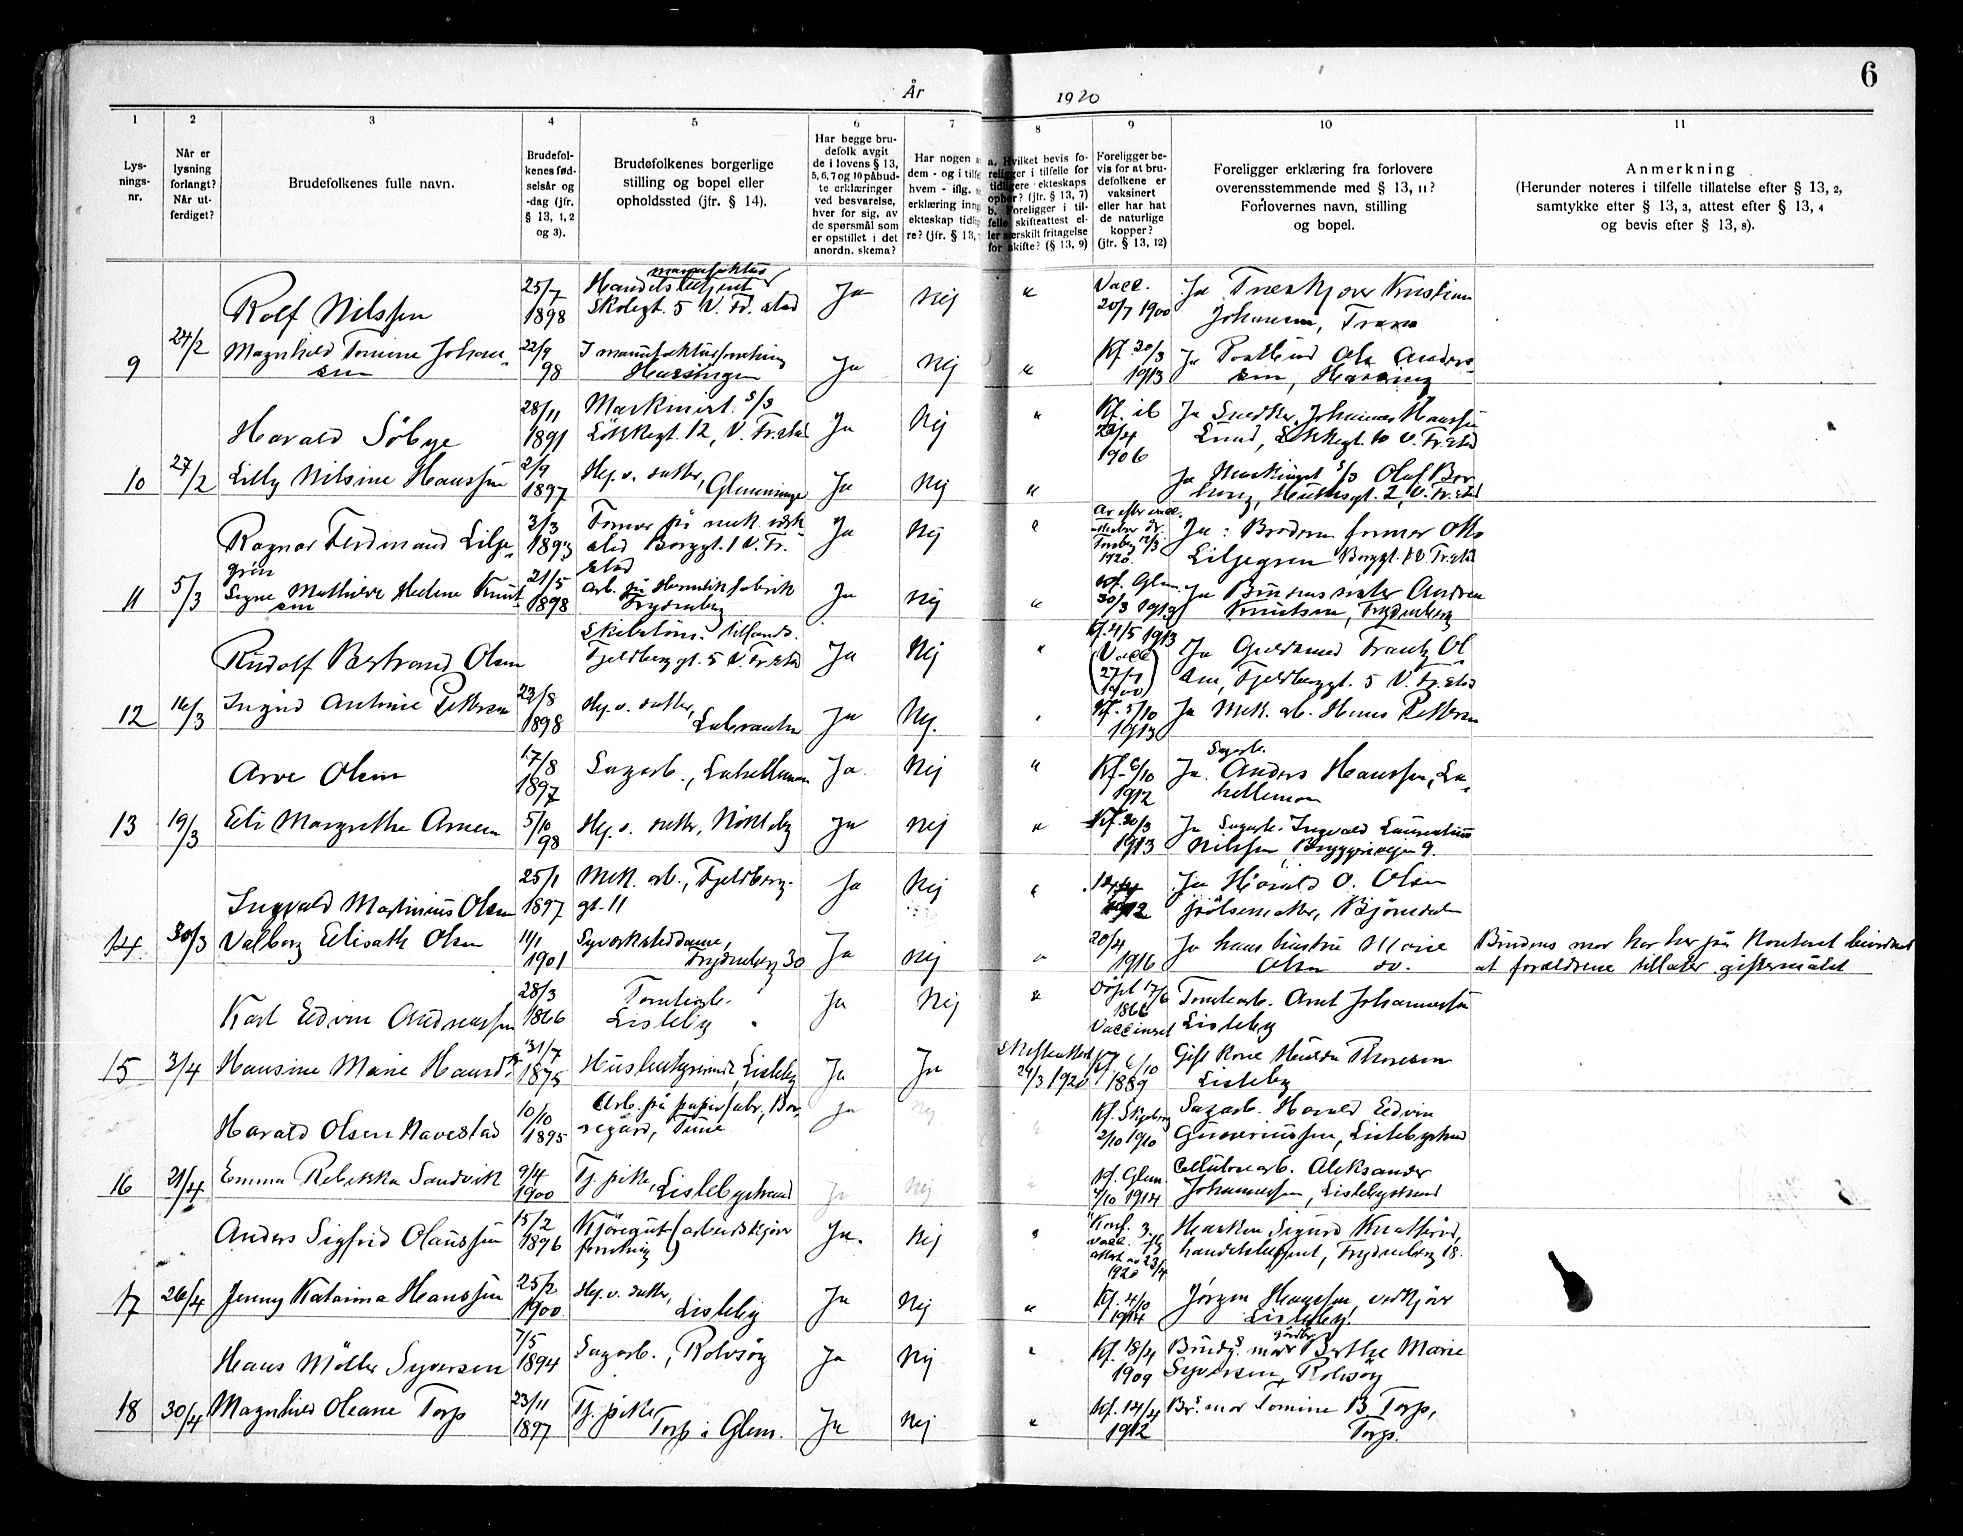 6
År 1920
1 2 3 4 5 6 7 8 9 10 11
Lys-
nings-
nr.
Når er
lysning
forlangt?
Når ut-
ferdiget?
Brudefolkenes fulle navn.
Brudefol-
kenes fød-
selsår og
-dag (jfr.
§ 13, 1, 2
og 3).
Brudefolkenes borgerlige
stilling og bopel eller
opholdssted (jfr. § 14).
Har begge bru-
defolk avgit
de i lovens § 13,
5, 6, 7 og 10 påbud-
te erklæringer
ved besvarelse,
hver for sig, av
de spørsmål som
er opstillet i det
anordn. skema?
Har nogen a
dem - og i tilfe
hvem - iflg.
erklæring inng
ekteskap tidlig
re? (jfr. § 13,
a. Hvilket bevis fo-
religger i tilfelle for
tidligere ekteskaps
ophør? (jfr. § 13, 7)
b. Foreligger i til-
felle skifteattest el-
ler særskilt fritagelse
for skifte? (§ 13, 9)
Foreligger be-
vis for at bru-
defolkene er
vaksinert
eller har hat
de naturlige
kopper?
(jfr. § 13, 12)
Foreligger erklæring fra forlovere
overensstemmende med § 13, 11?
Forlovernes navn, stilling
og bopel.
Anmerkning
(Herunder noteres i tilfelle tillatelse efter § 13, 2,
samtykke efter § 13, 3, attest efter § 13, 4
og bevis efter § 13, 8).
Rolf Nilssen 25/7 1898 manufaktur Handelsbetjent Skolegt. 5 V. Fr.stad Ja Nej " Vacc. 20/7 1900 Ja Kristian
Johansen, Trara
9 24/2 Magnhild Tomine Johan-
sen 22/9 98 I manufakturforretning Ja Nej " Kf. 20/3 1913 Ja Ole Anders-
sen,
Harald Söbye 28/11 1891 Maskinist s/s Lökkegt. 12, V. Fr.stad Ja Nej " Kf. ib 22/4 1906 Ja Snedker Johannes Hanssen
Lund, Lökkegt. 10 V. Fr.stad
10 27/2 Lilly Nilsine Hanssen 2/9 1897 Hj. v. datter, Glemminge Ja Nej " Ja Maskinist s/s Olaf Bor-
2, V. Fr.stad
Ragnar Ferdinand Lilje-
gren 3/3 1893 Former på mek. verk-
sted Borggt. 1 V. Fr.
stad Ja Nej " 12/3 1920. Ja: Broderen former Otto
Liljegren Borggt. V. Fr.stad
11 5/3 Signe Mathilde Helene Knut-
sen 21/5 1898 Arb. på Hermetikfabrik
Trydenborg Ja Nej " Kf. Glem. 30/3 1913 Ja Andrea
Knutsen, Trydenborg
Rudolf Bertrand Olsen
Fjeldberggt. 5 V. Fr.stad Ja Nej " Kf. 4/5 1913
(Vacc 27/7 1900) Ja Guldsmed Frantz Ol-
sen, Fjeldberggt. 5 V. Fr.stad
12 16/3 Ingrid Antonie Pettersen 22/8 1898 Hj. v. datter, Ja Nej. Kf. 5/10 1913 Ja Mek. arb. Hans Pettersen
Arve Olsen 17/8 1897 Sagarb., Ja Nej " Kf. 6/10 1912 Ja Sagarb. Anders Hanssen,
13 19/3 Eli Margrethe Arnesen 5/10 98 Hj. v. datter, Nökleby Ja Nej " Kf. 30/3 1913 Ja Sagarb. Ingvald Laurentius
Nilssen, Bryggeriveien 9.
Ingvald Martinius Olsen 25/1 1897 Mek. arb., Fjeldberg-
gt. 11 Ja Nej " 1912 Ja Harald O. Olsen
pölsemaker, Bjørndalen
14 30/3 Valborg Elisabeth Olsen 11/1 1901 Syverksteddame,
Trydenborg 30 Ja Nej " 20/4 1916 Ja hans hustru Marie
Olsen do. Brudens mor har her på kontoret bevidnet
at forældrene tillater giftermålet
Karl Edvin Andreassen 28/3 1866 Tomtearb.
Lisleby Ja Nej " Döpt 17/6 1866
Vaccineret Tomtearb. Arnt Johannessen
Lisleby
15 3/4 Hansine Marie Hansdtr 31/7 1875 Husbestyrerinde, Lisleby Ja Ja Skifteattest 24/3 1920 Kf. 6/10 1889 Gift Kone Hulda Thoresen
Lisleby
Harald Olsen Navestad 10/10 1895 Arb. på papirfabr., Bor-
regård, Tune Ja Nej " Kf. Skjeberg 2/10 1910 Sagarb. Harald Edvin
Gunneriussen, Lislebystrand
16 21/4 Emma Rebekka Sandvik 9/4 1900 Tj. pike, Lislebystrand Ja Nej " Kf. Glem. 4/10 1914 Cellulosearb. Aleksander
Johannessen, Lislebystrand
Anders Sigfrid Olaussen 15/2 1896 Kjöregut (arbeidskjörer
forretning) Ja. Nej " Konf.
vacc.
attest av 23/4
1920 Haakon Sigurd
handelsbetjent, Trydenborg 18.
17 26/4 Jenny Katarina Hanssen 25/2 1900 Hj. v. datter,
Lisleby Ja Nej " Kf. 4/10 1914 Jörgen Hanssen, vedkjörer
Lisleby.
Hans Möller Syversen 7/5 1894 Sagarb., Rolvsöy Ja Nej " Kf. 18/4 1909 Brudg.s mor Berthe Marie
Syversen, Rolvsöy
18 30/4 Magnhild Oleane Torp 23/11 1897 Tj. pike
Torp i Glem. Ja Nej " Kf. 14/4 1912 Br.s mor Tomine B. Torp,
Torp.